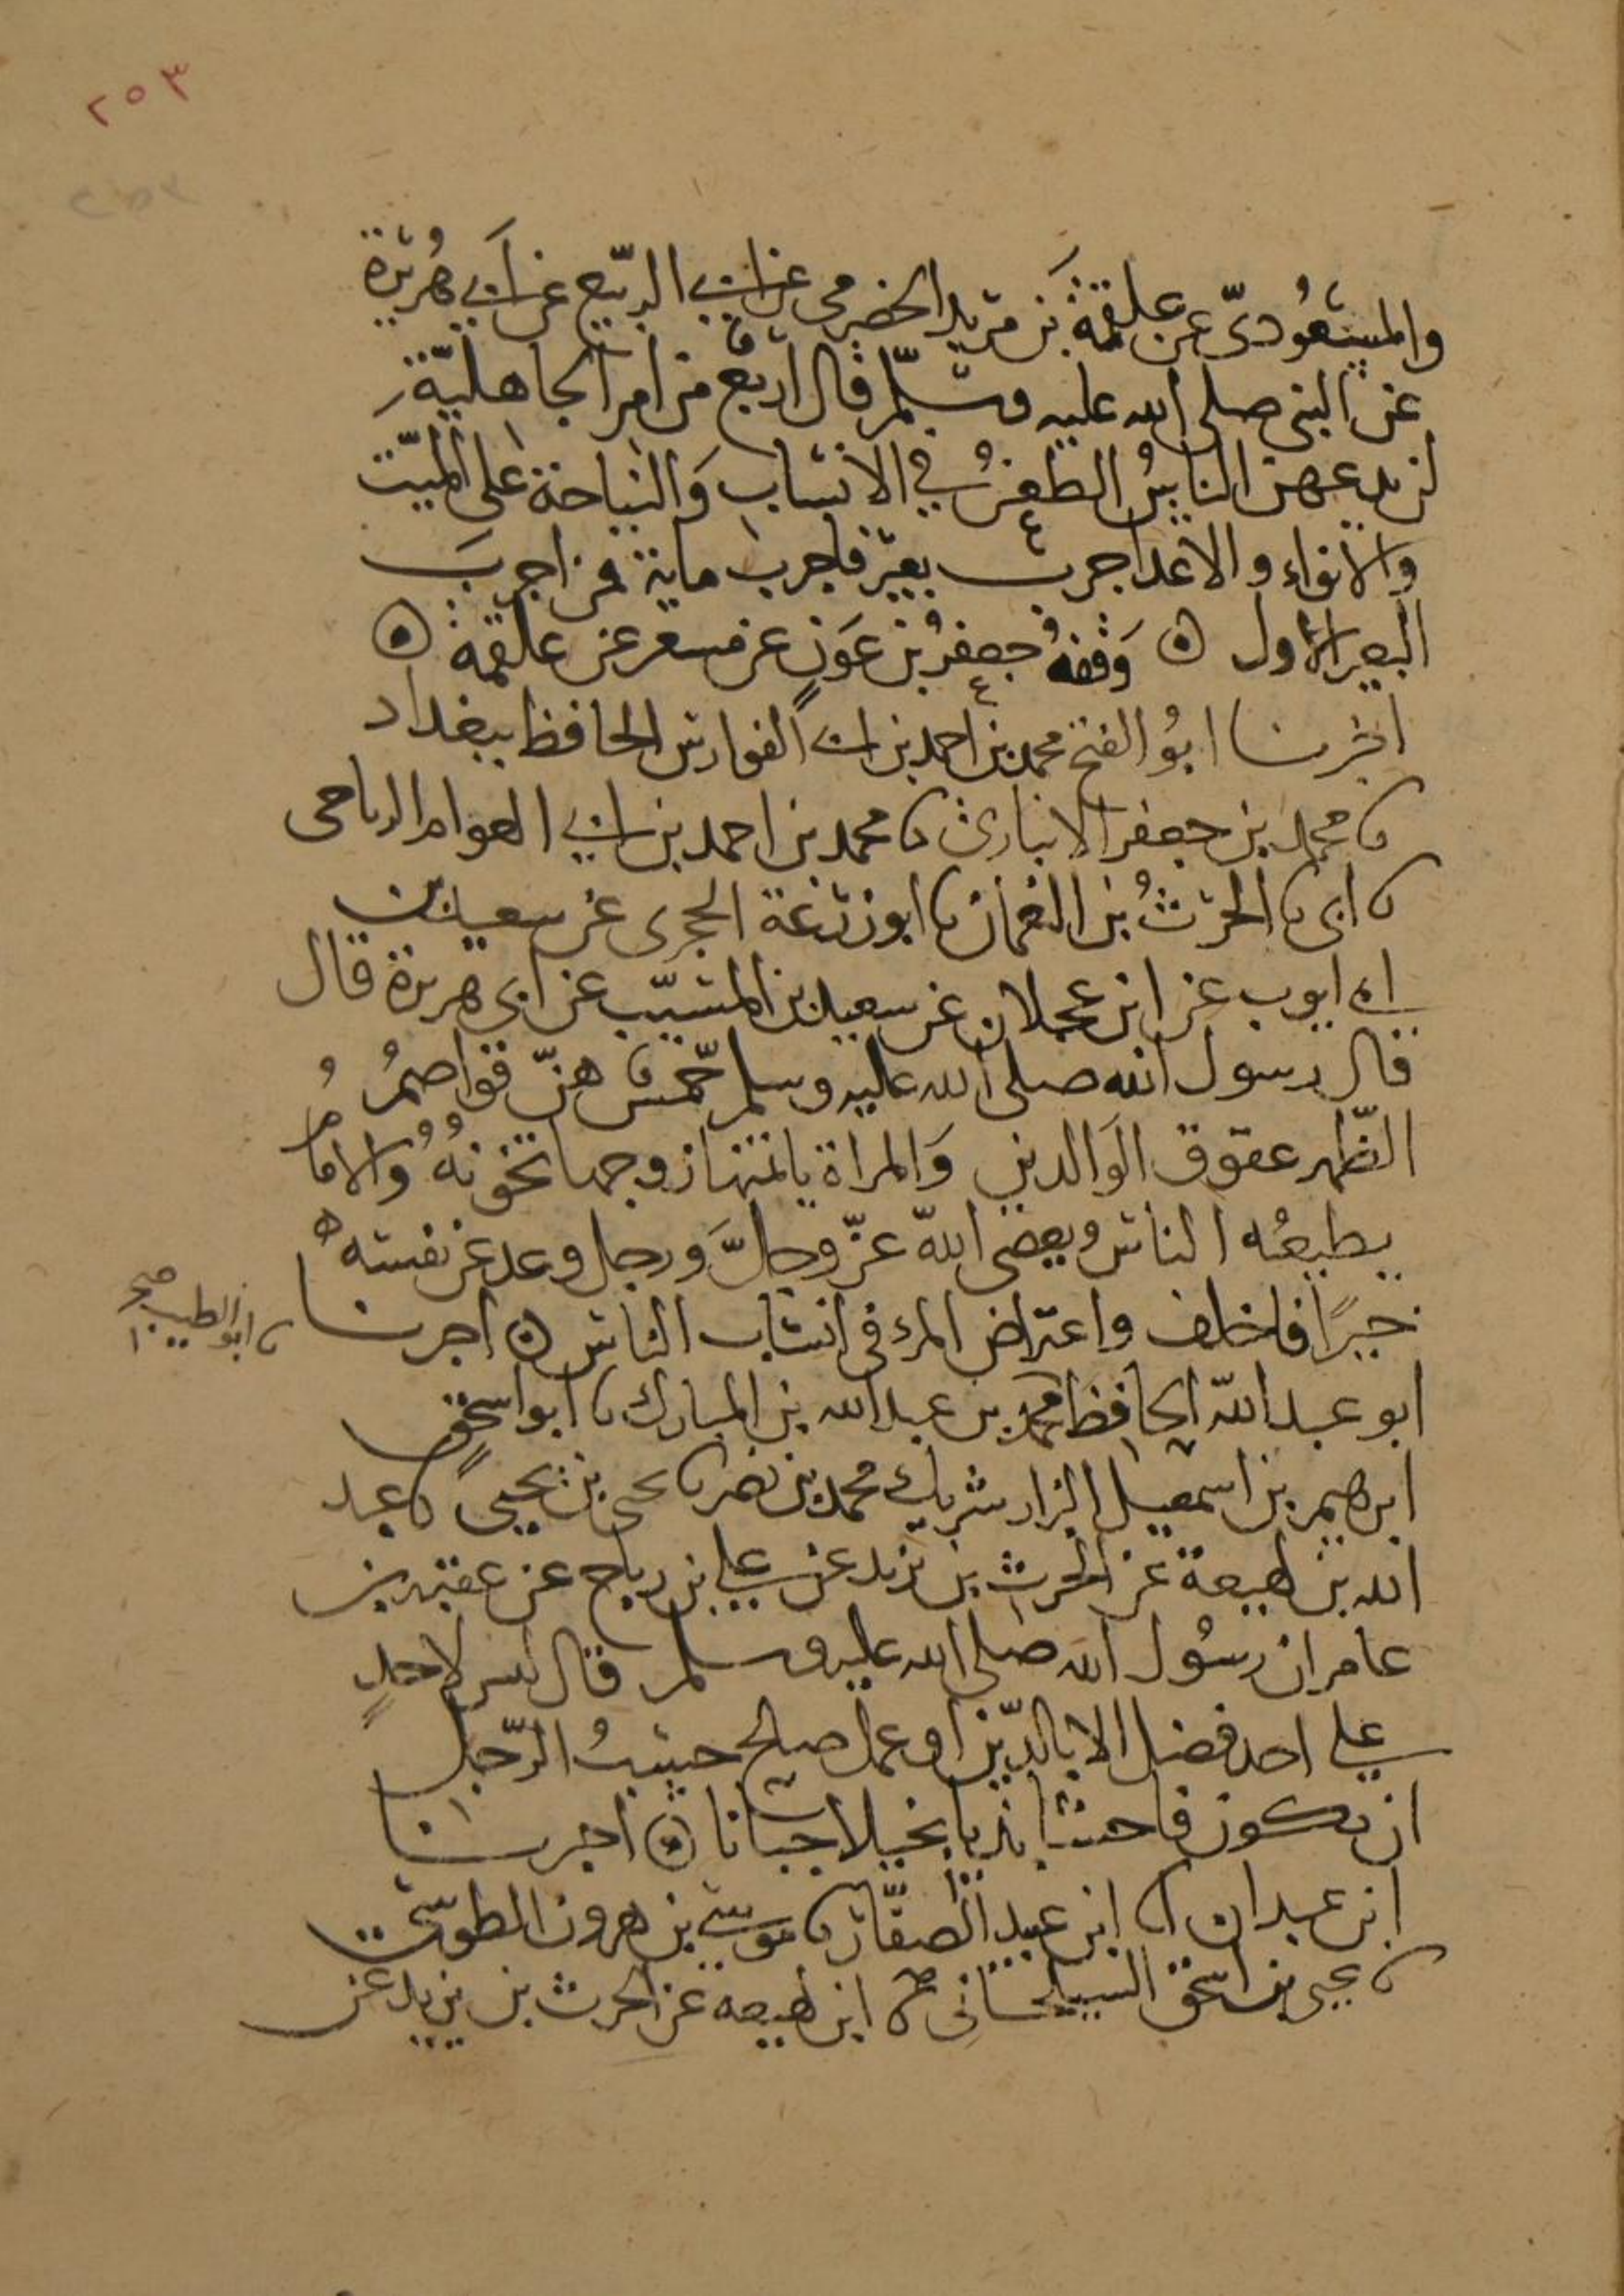 ٢٥٣
والمسعُودىّ عن علقمة بن مرثد الحضرمى عن ابى الربيع عن ابى هُريرة
عن النبى صلى الله عليه وسلّم قال اربع من امر الجاهليّة
لن يدعهن الناسُ الطعنُ فى الانساب وَالنياحة على الميّت
والانواء والاعدا جرب بعير فاجرب ماية فمن اجرب
البعير الاول ۞ وَقفهُ جعفرُ بن عَون عن مسعر عن علقمة ۞
اخبرنا ابُو الفتح محمد بن احمد بن ابى الفوارس الحافظ ببغداد
نا محمد بن جعفر الانبارى نا محمد بن احمد بن ابى العوام الرياحى
نا ابى نا الحرثُ بن النعمان نا ابو زرعة الحجرى عن سعيد بن
ابى ايوب عن ابن عجلان عن سعيد بن المسيّب عن ابى هريرة قال
قال رسول الله صلى الله عليه وسلم خمس هنّ قواصمُ
الظّهر عقوق الوَالدين وَالمراة ياتمنها زوجها تخونهُ وُالامامُ
يطيعُه الناس ويعصى اللهّ عزّ وجلَّ وَرجل وعد عن نفسه
خيرًا فاخلف واعتراض المرء فى انساب الناس ۞ اخبرنا
نا ابو الطيب صح
ابو عبد اللهّ الحافظ محمد بن عبد الله بن المبارك نا ابو اسحق
ابرهيم بن اسمعيل البزار شريك محمد بن نصر نا يحيى بن يحيى نا عبد
الله بن لهيعة عن الحرث بن يزيد عن على بن رباح عن عقبة بن
عامر ان رسُول الله صلى الله عليه وسلم قال ليس لاحدٍ
على احد فضل الا بالدّين او عمل صالح حسبُ الرّجل
ان يكون فاحشا بذيا بخيلا جبانا ۞ اخبرنا
ابن عبدان انا ابن عبيد الصفّار نا موسى بن هرون الطوسى
نا يحيى بن اسحق السيلحانى نا ابن لهيعه عن الحرث بن يزيد عن